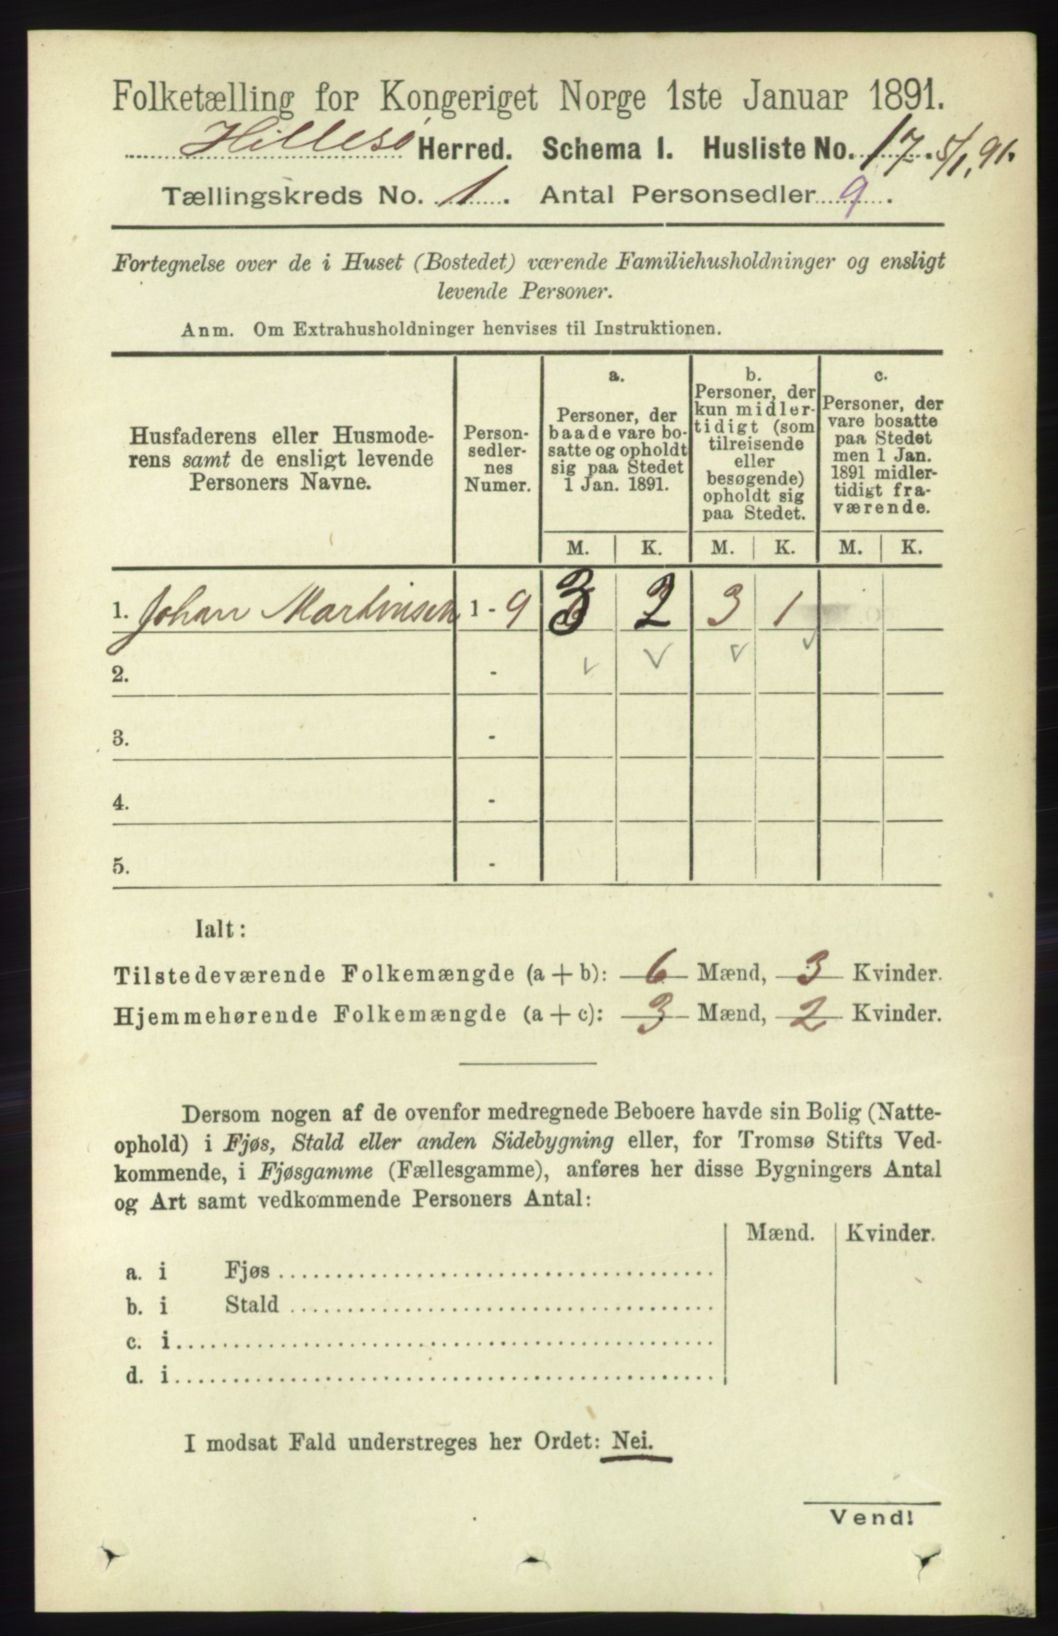 Folketælling for Kongeriget Norge 1ste Januar 1891.
Hillesø Herred. Schema I. Husliste No. 17. 5/1. 91.
Tællingskreds No. 1. Antal Personsedler 9.
Fortegnelse over de i Huset (Bostedet) værende Familiehusholdninger og ensligt
levende Personer.
Anm. Om Extrahusholdninger henvises til Instruktionen.
Husfaderens eller Husmode-
rens samt de ensligt levende
Personers Navne.
Person-
sedler-
nes
Numer.
a.
Personer, der
baade vare bo-
satte og opholdt
sig paa Stedet
1 Jan. 1891.
b.
Personer, der
kun midler-
tidigt (som
tilreisende
eller
besøgende)
opholdt sig
paa Stedet.
c.
Personer, der
vare bosatte
paa Stedet
men 1 Jan.
1891 midler-
tidigt fra-
værende.
M. K. M. K. M. K.
1. Johan Martinsen 1 - 9 3 2 3 1
2. -
3. -
4. -
5. -
Ialt:
Tilstedeværende Folkemængde (a + b): 6 Mænd, 3 Kvinder.
Hjemmehørende Folkemængde (a + c): 3 Mænd, 2 Kvinder.
Dersom nogen af de ovenfor medregnede Beboere havde sin Bolig (Natte-
ophold) i Fjøs, Stald eller anden Sidebygning eller, for Tromsø Stifts Ved-
kommende, i Fjøsgamme (Fællesgamme), anføres her disse Bygningers Antal
og Art samt vedkommende Personers Antal:
Mænd. Kvinder.
a. i Fjøs
b. i Stald
c. i
d. i
I modsat Fald understreges her Ordet: Nei.
Vend!